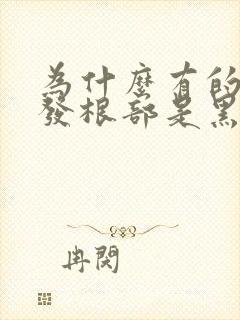 為什麼有的
發根部是黑
冉閱